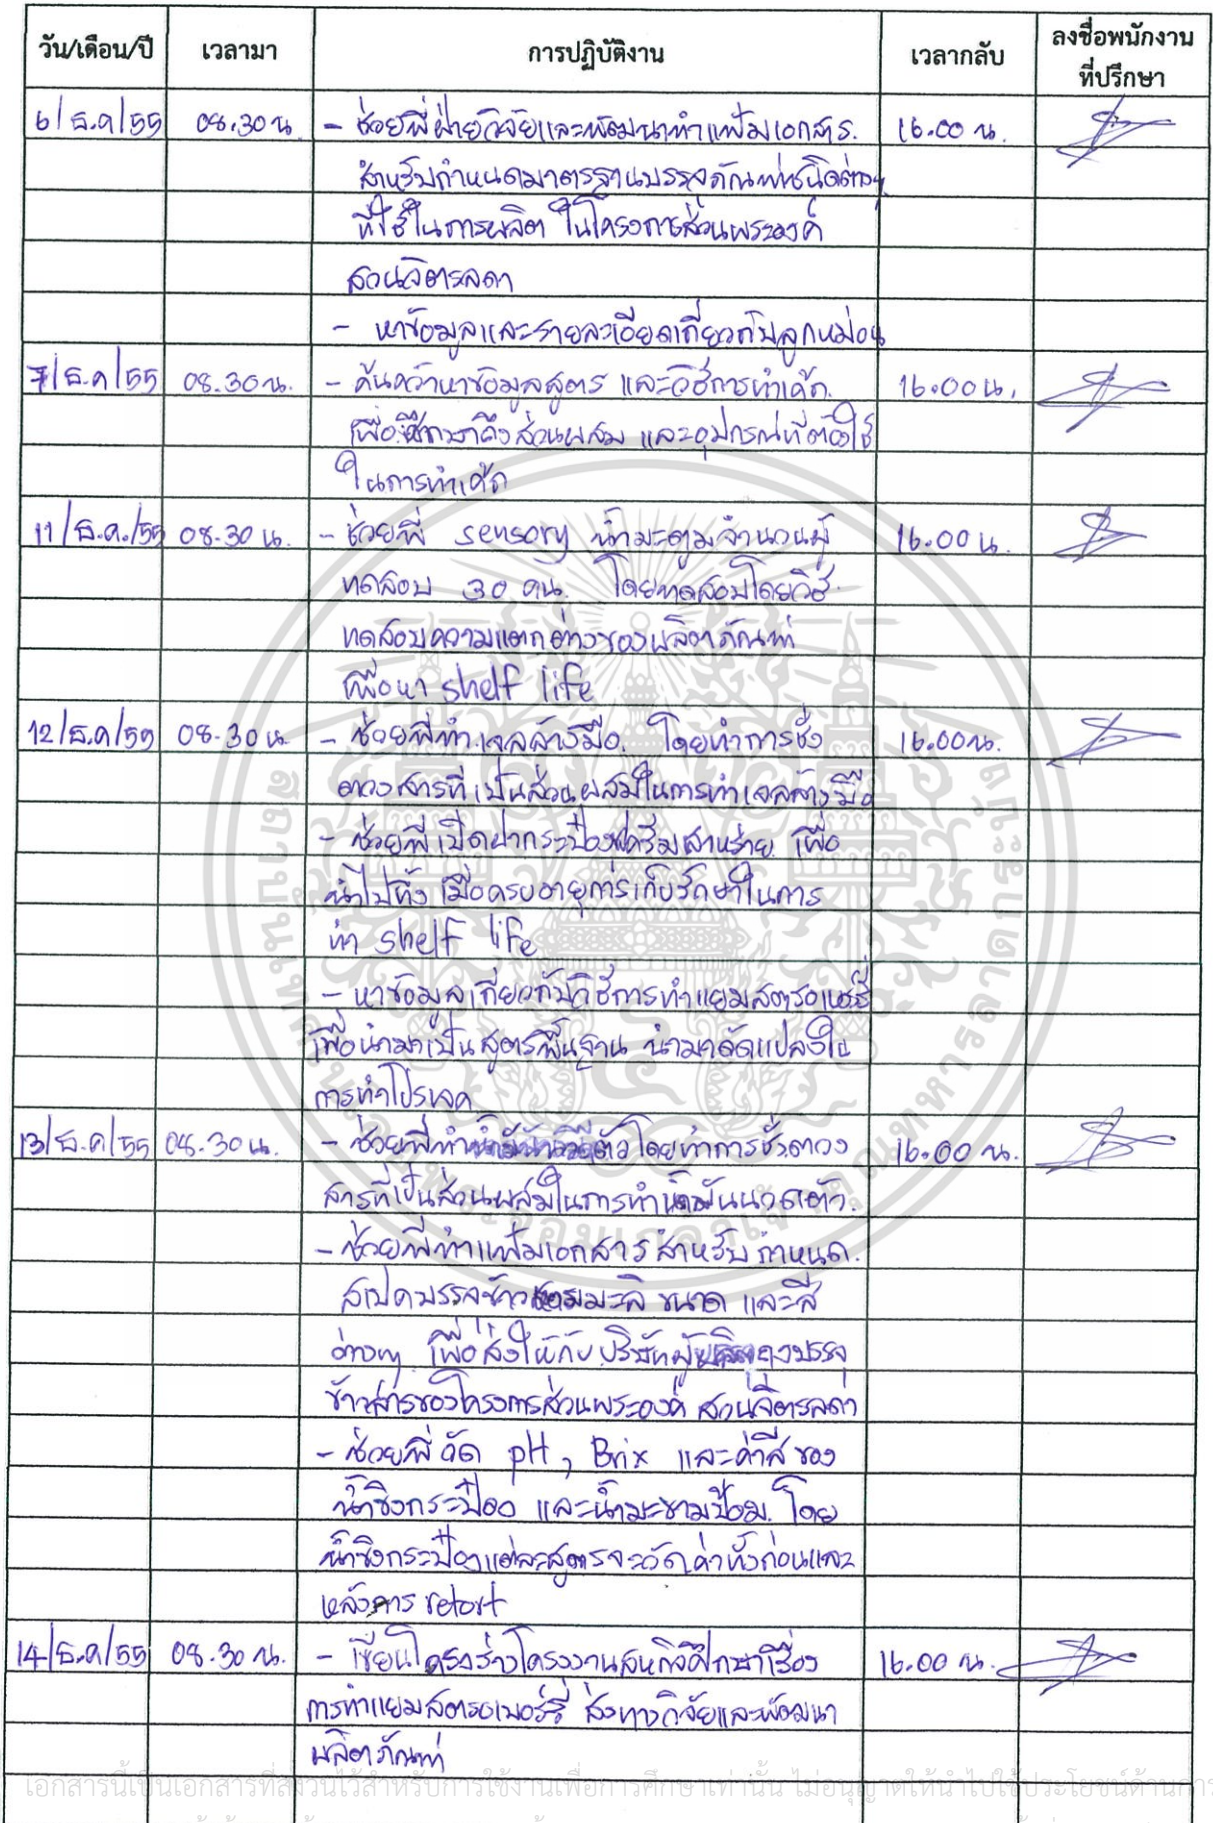 วัน/เดือน/ปี เวลามา การปฏิบัติงาน เวลากลับ ลงชื่อพนักงาน
ที่ปรึกษา
6/ธ.ค/55 08.30 น. - ช่วยพี่ฝ่ายวิจัยและพัฒนาทำแฟ้มเอกสาร. 16.00 น.
สำหรับกำหนดมาตรฐานบรรจุภัณฑ์ชนิดต่างๆ
ที่ใช้ในการผลิต ในโครงการส่วนพระองค์
สวนจิตรลดา
- หาข้อมูลและรายละเอียดเกี่ยวกับลูกหม่อน
7/ธ.ค/55 08.30 น. - ค้นคว้าหาข้อมูลสูตร และวิธีการทำเค้ก. 16.00 น.
เพื่อศึกษาถึงส่วนผสม และอุปกรณ์ที่ต้องใช้
ในการทำเค้ก
11/ธ.ค./55 08.30 น. - ช่วยพี่ sensory น้ำมะตูมจำนวนผู้ 16.00 น.
ทดสอบ 30 คน. โดยทดสอบโดยวิธี
ทดสอบความแตกต่างของผลิตภัณฑ์
เพื่อหา shelf life
12/ธ.ค/55 08.30 น. - ช่วยพี่ทำเจลล้างมือ. โดยทำการชั่ง 16.00 น.
ตวงสารที่เป็นส่วนผสมในการทำเจลล้างมือ
- ช่วยพี่เปิดฝากระป๋องครีมสาหร่าย เพื่อ
นำไปทิ้ง เมื่อครบอายุการเก็บรักษาในการ
ทำ shelf life
- หาข้อมูลเกี่ยวกับวิธีการทำแยมสตรอเบอร์รี่
เพื่อนำมาเป็นสูตรพื้นฐาน นำมาดัดแปลงใน
การทำโปรเจค
13/ธ.ค/55 08.30 น. - ช่วยพี่ทำน้ำมันนวดตัวโดยทำการชั่งตวง 16.00 น.
สารที่เป็นส่วนผสมในการทำน้ำมันนวดตัว.
- ช่วยพี่ทำแฟ้มเอกสาร สำหรับกำหนด.
สเปคบรรจุข้าวหอมมะลิ ขนาด และสี
ต่างๆ เพื่อส่งให้กับบริษัทผู้ผลิตถุงบรรจุ
ข้าวสารของโครงการส่วนพระองค์ สวนจิตรลดา
- ช่วยพี่วัด pH, Brix และค่าสีของ
น้ำขิงกระป๋อง และน้ำมะขามป้อม. โดย
น้ำขิงกระป๋องแต่ละสูตรจะวัดค่าทั้งก่อนและ
หลังการ retort
14/ธ.ค/55 08.30 น. - เขียนโครงร่างโครงงานสหกิจศึกษาเรื่อง 16.00 น.
การทำแยมสตรอเบอร์รี่ ส่งทางวิจัยและพัฒนา
ผลิตภัณฑ์
เอกสารนี้เป็นเอกสารที่สงวนไว้สำหรับการใช้งานเพื่อการศึกษาเท่านั้น ไม่อนุญาตให้นำไปใช้ประโยชน์ด้านการ